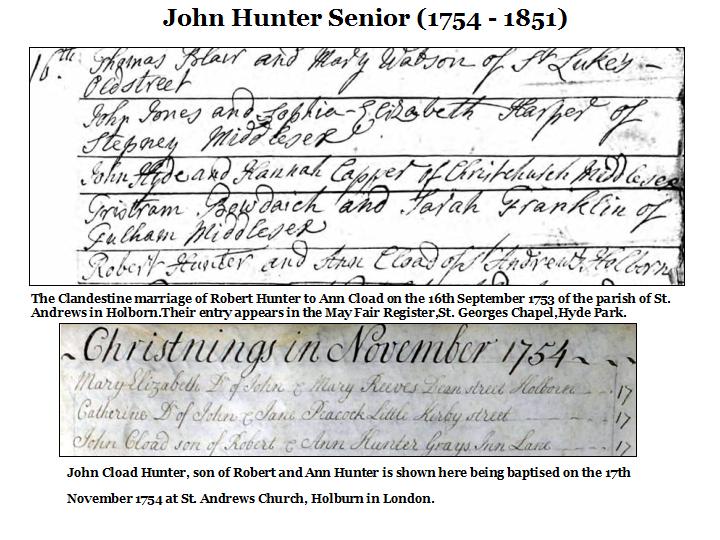 John Hunter Senior (1754 - 1851)
16th. Thomas Blair and Mary Watson of St Luke's –
Oldstreet
John Jones and Sophia-Elizabeth Harper of
Stepney Middlesex
John Hyde and Hannah Capper of Christchurch Middlesex
Gristram Bawdaich and Sarah Franklin of
Fulham Middlesex
Robert Hunter and Ann Cload of St Andrew's, Holborn
The Clandestine marriage of Robert Hunter to Ann Cload on the 16th September 1753 of the parish of St.
Andrews in Holborn.Their entry appears in the May Fair Register,St. Georges Chapel,Hyde Park.
~Christnings in November 1754~ ~ ~
Mary Elizabeth Dr. of John & Mary Reeves Dean street Holborne - - - 17
Catherine Dr. of John & Jane Peacock Little Kirby street - - - 17
John Cload son of Robert & Ann Hunter Grays Inn Lane - - - 17
John Cload Hunter, son of Robert and Ann Hunter is shown here being baptised on the 17th
November 1754 at St. Andrews Church, Holburn in London.